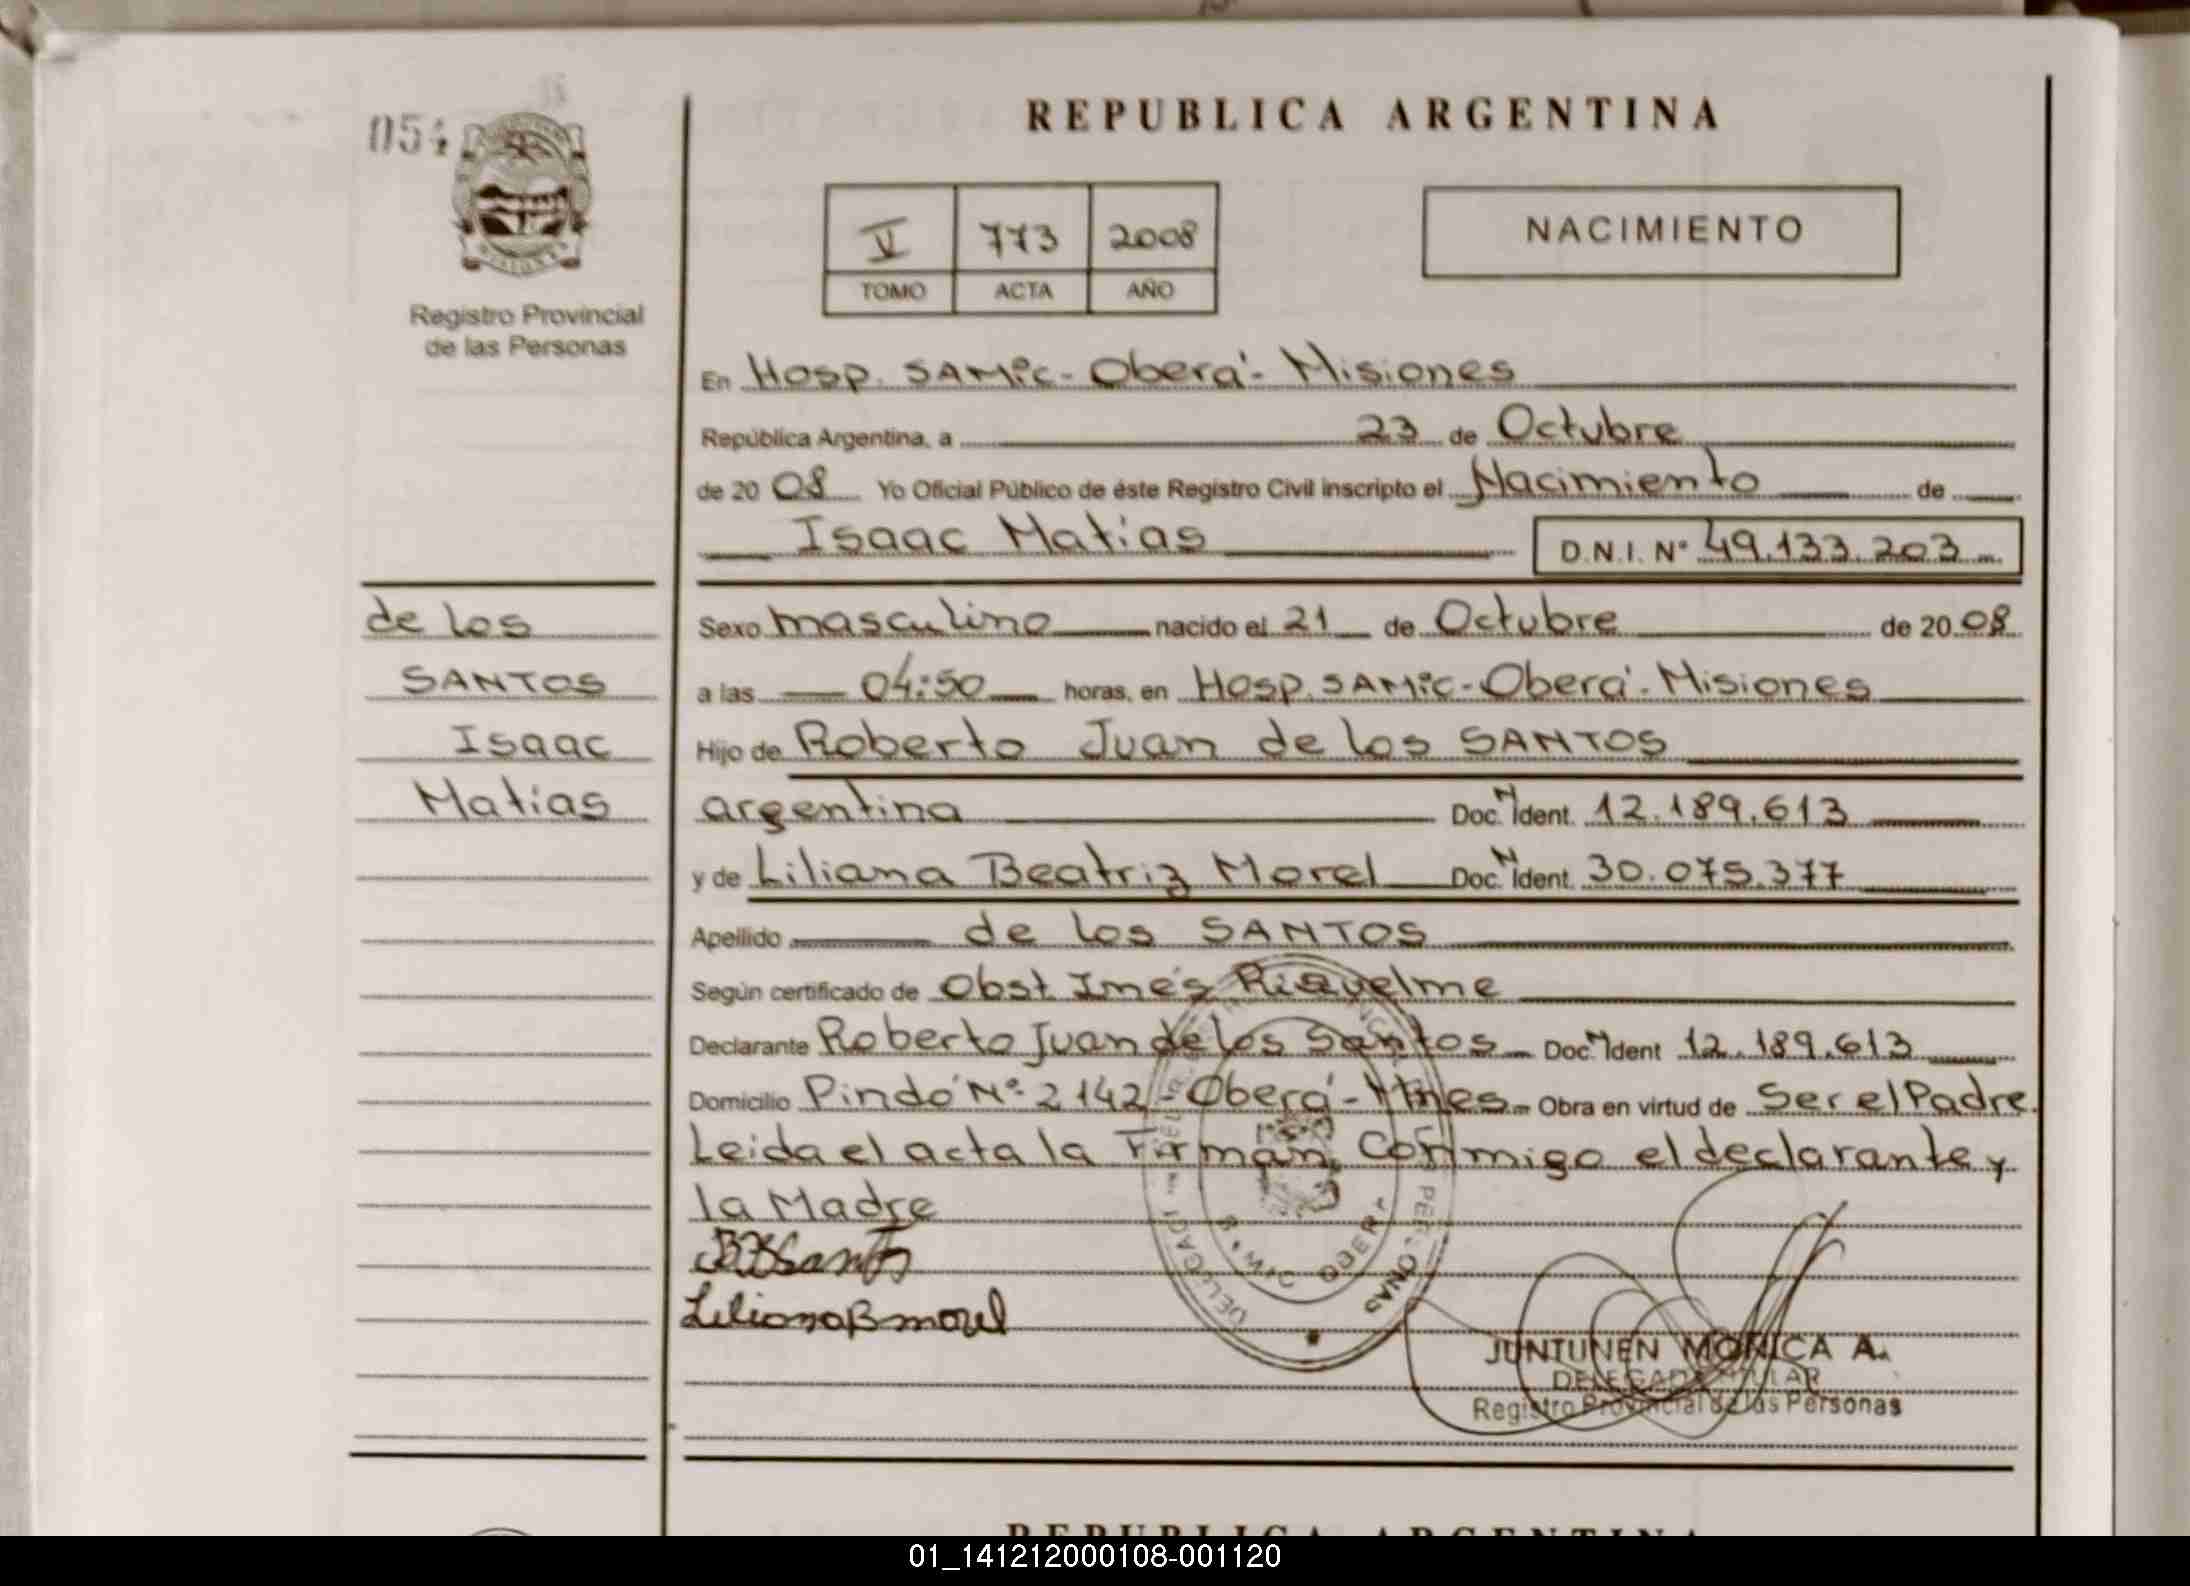 054
REPUBLICA ARGENTINA
V 773 2008
TOMO ACTA AÑO
NACIMIENTO
Registro Provincial
de las Personas
En Hosp. SAMic - Oberá - Misiones
República Argentina, a 23 de Octubre
de 20 08 Yo Oficial Público de éste Registro Civil inscripto el Nacimiento de
Isaac Matías D.N.I. Nº 49.133.203
de los
SANTOS
Isaac
Matías
Sexo masculino nacido el 21 de Octubre de 20 08
a las 04:50 horas, en Hosp. SAMic - Oberá - Misiones
Hijo de Roberto Juan de los SANTOS
argentina Doc. N Ident. 12.189.613
y de Liliana Beatriz Morel Doc. N Ident. 30.075.377
Apellido de los SANTOS
Según certificado de Obst Inés Riquelme
Declarante Roberto Juan de los Santos Doc. N Ident 12.189.613
Domicilio Pindó Nº 2142 - Oberá - Mnes Obra en virtud de Ser el Padre.
Leida el acta la Firman, Conmigo el declarante y
la Madre
Liliana B morel
JUNTUNEN MONICA A.
DELEGADA TITULAR
Registro Provincial de las Personas
REPUBLICA ARGENTINA
01_141212000108-001120